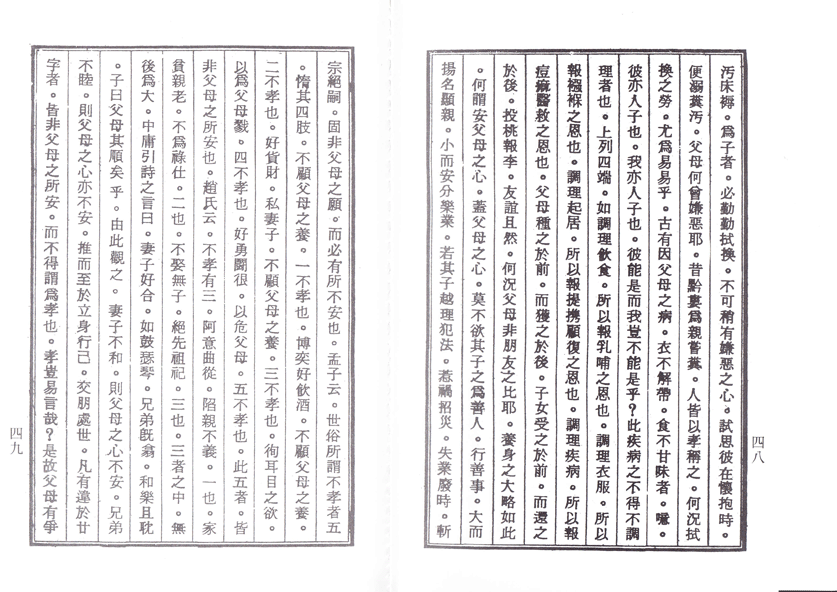 汚床褥。爲子者。必勤勤拭換。不可稍有嫌惡之心。試思彼在懷抱時。
便溺糞汚。父母何曾嫌惡耶。昔黔婁爲親嘗糞。人皆以孝稱之。何況拭
換之勞。尤爲易易乎。古有因父母之病。衣不解帶。食不甘味者。噫。
彼亦人子也。我亦人子也。彼能是而我豈不能是乎？此疾病之不得不調
理者也。上列四端。如調理飲食。所以報乳哺之恩也。調理衣服。所以
報襁褓之恩也。調理起居。所以報提携顧復之恩也。調理疾病。所以報
痘癍醫救之恩也。父母種之於前。而獲之於後。子女受之於前。而還之
於後。投桃報李。友誼且然。何況父母非朋友之比耶。養身之大略如此
。何謂安父母之心。蓋父母之心。莫不欲其子之爲善人。行善事。大而
揚名顯親。小而安分樂業。若其子越理犯法。惹禍招災。失業廢時。斬
四八
宗絕嗣。固非父母之願。而必有所不安也。孟子云。世俗所謂不孝者五
。惰其四肢。不顧父母之養。一不孝也。博奕好飲酒。不顧父母之養。
二不孝也。好貨財。私妻子。不顧父母之養。三不孝也。徇耳目之欲。
以爲父母戮。四不孝也。好勇鬭很。以危父母。五不孝也。此五者。皆
非父母之所安也。趙氏云。不孝有三。阿意曲從。陷親不義。一也。家
貧親老。不爲祿仕。二也。不娶無子。絕先祖祀。三也。三者之中。無
後爲大。中庸引詩之言曰。妻子好合。如鼓瑟琴。兄弟旣翕。和樂且耽
。子曰父母其順矣乎。由此觀之。妻子不和。則父母之心不安。兄弟
不睦。則父母之心亦不安。推而至於立身行己。交朋處世。凡有違於廿
字者。皆非父母之所安。而不得謂爲孝也。孝豈易言哉？是故父母有爭
四九